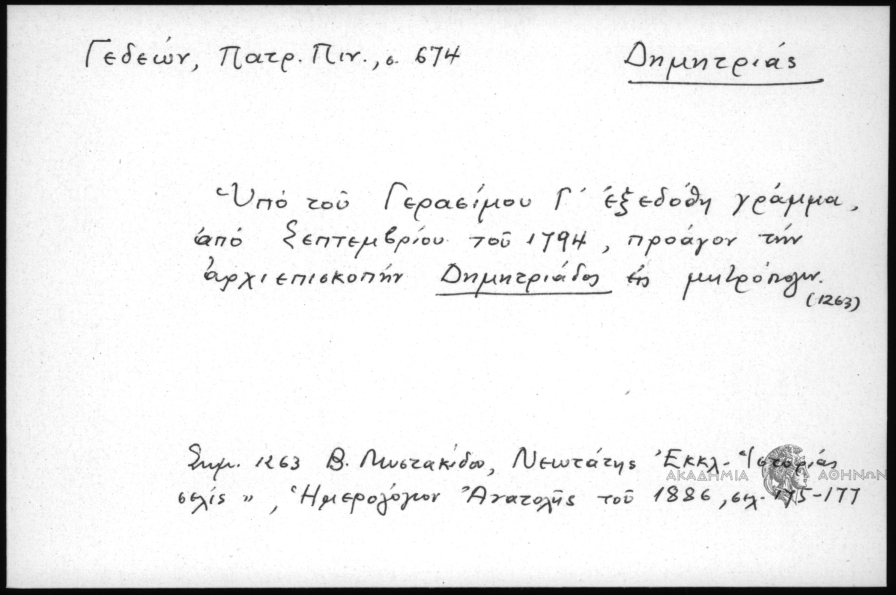 Γεδεών, Πατρ. Πιν., σ. 674
Δημητριάς
Ὑπό τοῦ Γερασίμου Γ΄ ἐξεδόθη γράμμα,
ἀπό Σεπτεμβρίου τοῦ 1794, προάγον τήν
ἀρχιεπισκοπήν Δημητριάδος εἰς μητρόπολιν.
(1263)
Σημ. 1263 Β. Μυστακίδου, Νεωτάτης Ἐκκλ. Ἱστορίας
σελίς", Ἡμερολόγιον Ἀνατολῆς τοῦ 1886, σελ. 175-177
ΑΚΑΔΗΜΙΑ ΑΘΗΝΩΝ